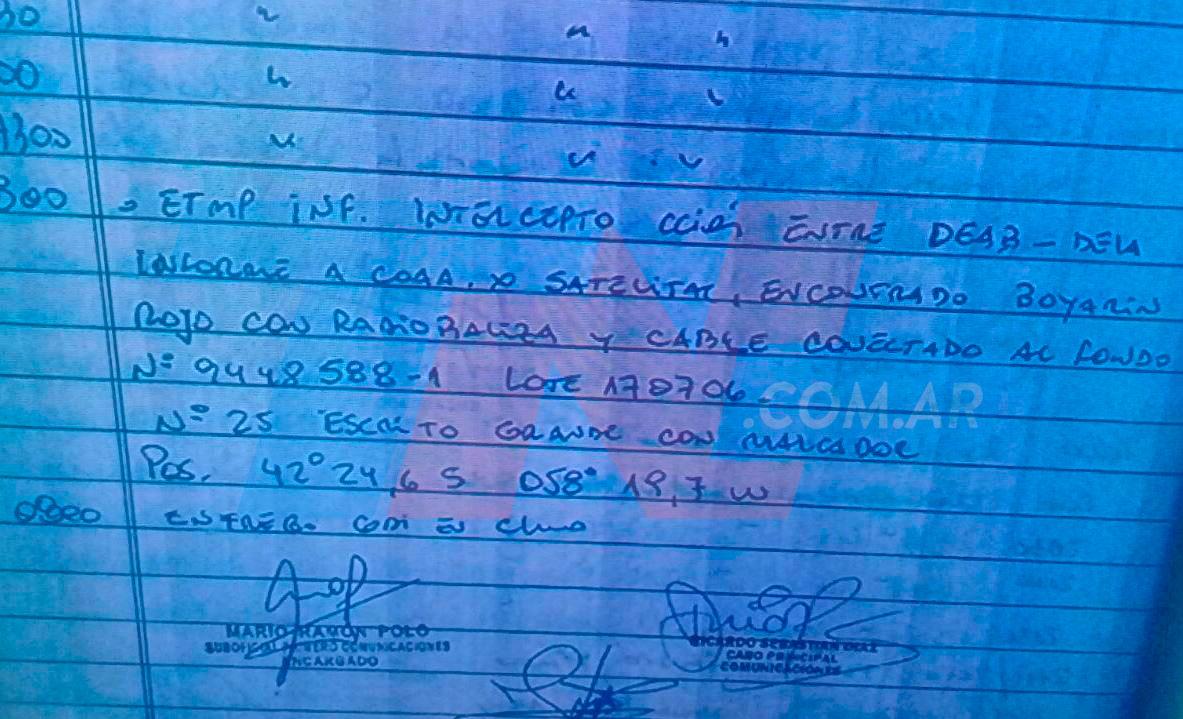 30 " " "
00 " " "
1300 " " "
300 ETMP INF. INTERCEPTO CCIÓN ENTRE DEAB - DELA
INFORME A COAA. XO SATELITAL, ENCONTRADO BOYARIN
ROJO CON RADIOBALIZA Y CABLE CONECTADO AL FONDO
Nº 9448588-1 LOTE 170706.
.COM.AR
Nº 25 ESCRITO GRANDE CON MARCADOR
POS. 42° 24,6 S 058° 18,7 W
0800 ENTREGO
MARIO RAMÓN POLO
SUBOFICIAL PRIMERO COMUNICACIONES
ENCARGADO
RICARDO SEBASTIAN DIAZ
CABO PRINCIPAL
COMUNICACIONES